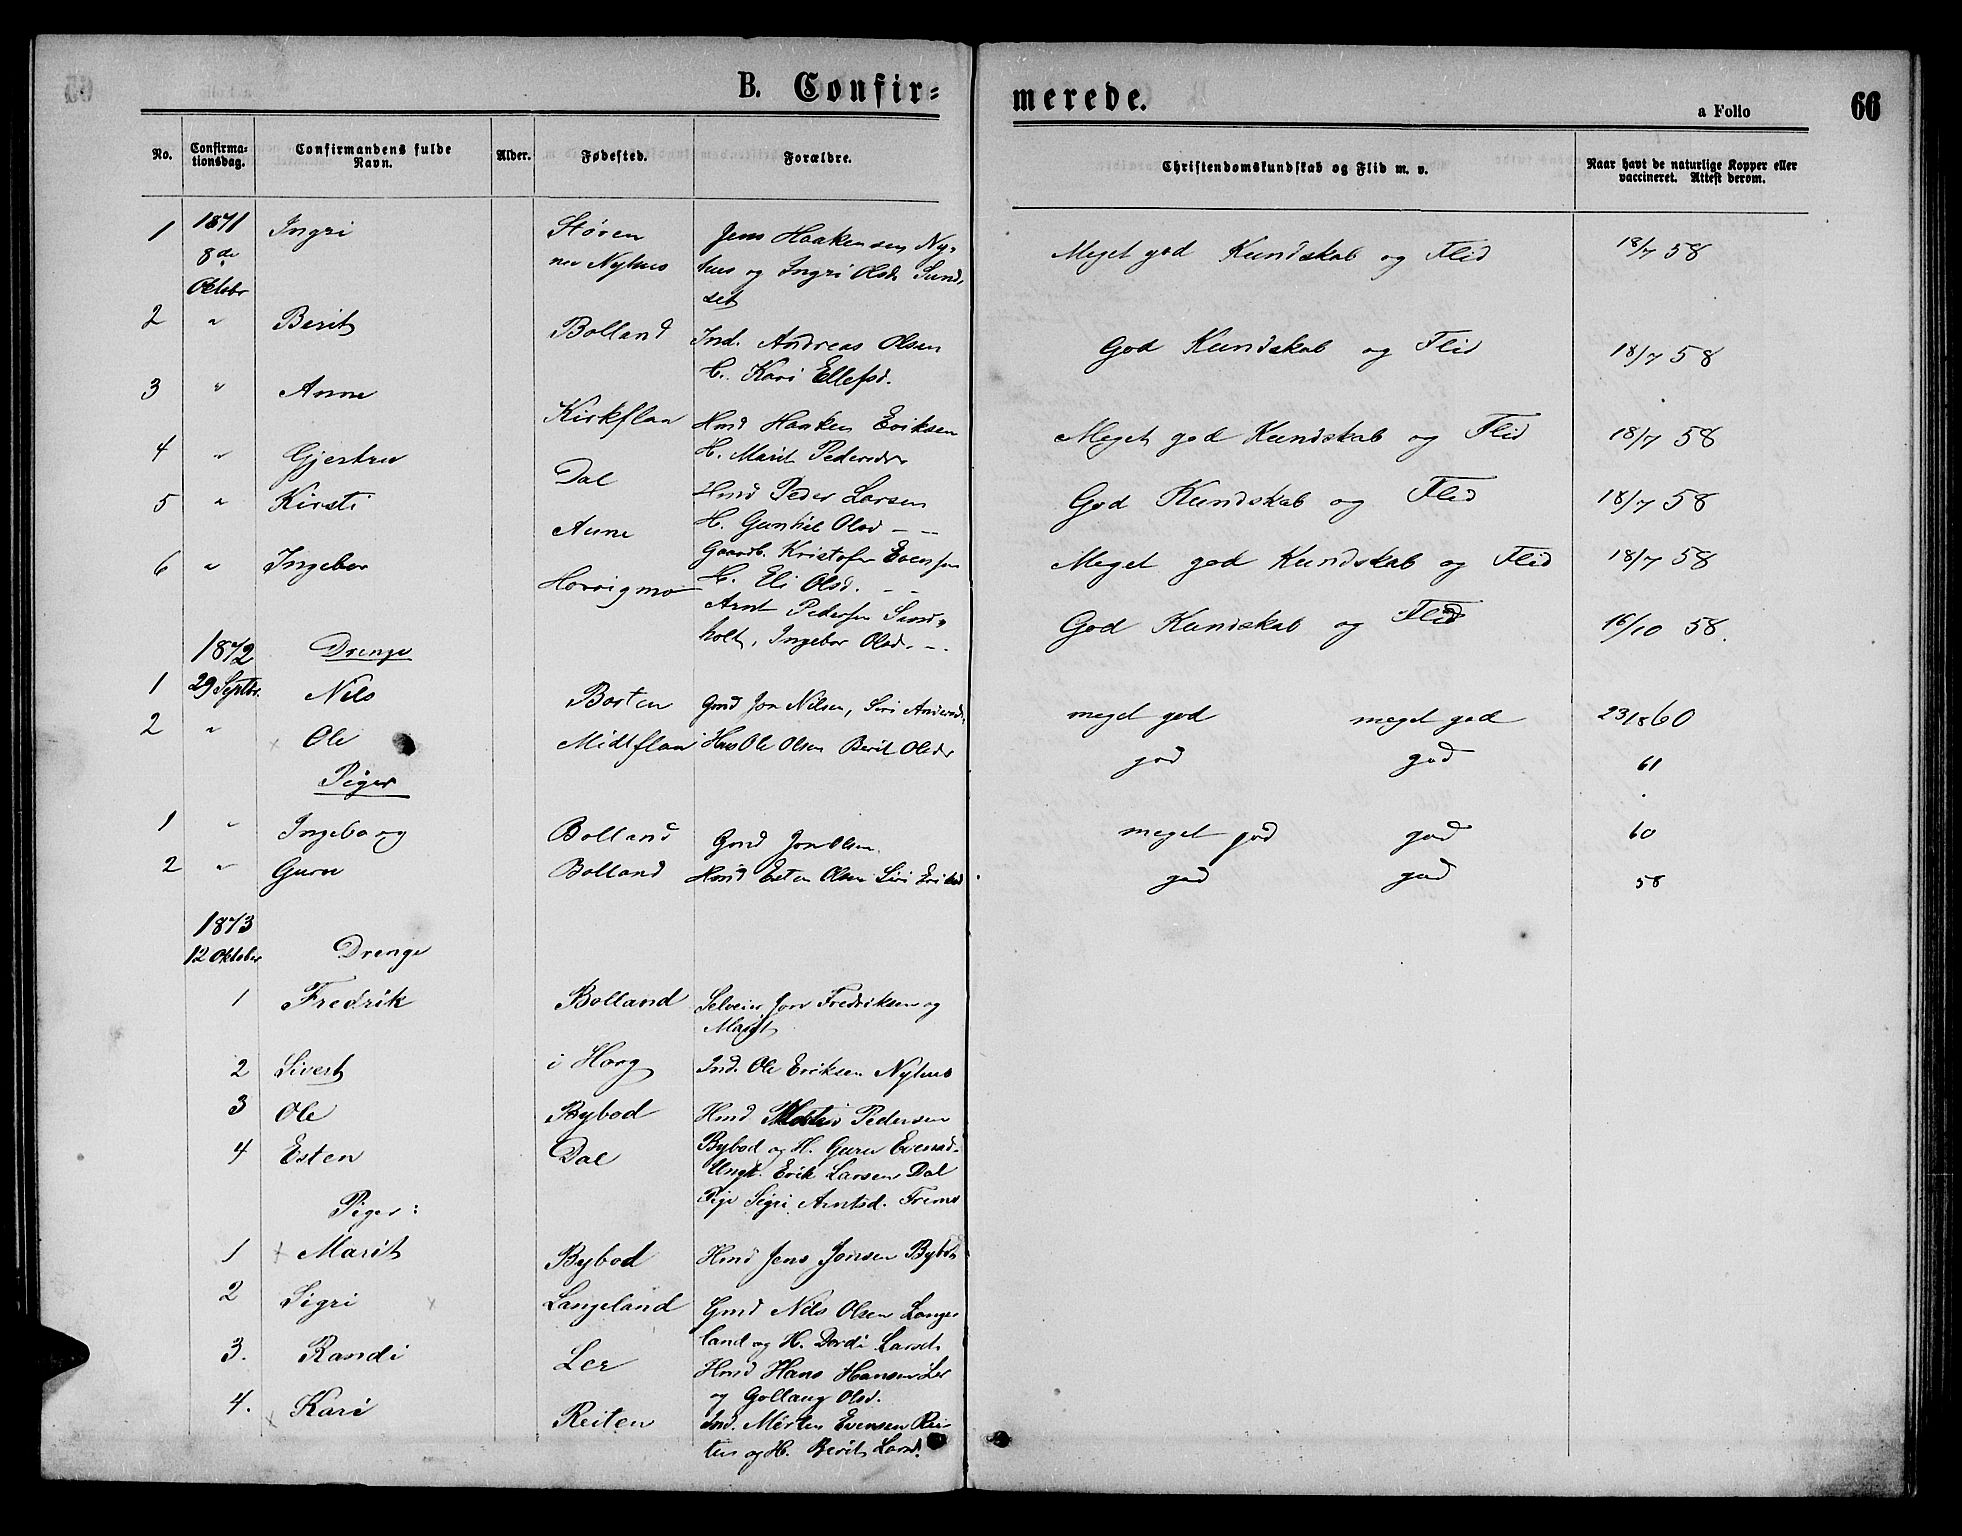 B. Confir=
merede.
a Folio
66
No.
Confirma-
tionsdag.
Confirmandens fulde
Navn.
Alder.
Fødested.
Forældre.
Christendomskundskab og Flid m. v.
Naar havt de naturlige Kopper eller
vaccineret. Attest derom.
1 1871 Ingri Støren Jens Haakensen Ny-
8de ner Nyhus hus og Ingri Olsd. Sund-
Oktobr set
Meget god Kundskab og Flid 18/7 58
2 " Berit Bolland Ind. Andreas Olsen
H. Kari Ellefsd.
God Kundskab og Flid 18/7 58
3 " Anne Kirkflaa Hmd Haaken Eriksen
H. Marit Pedersdr
Meget god Kundskab og Flid 18/7 58
4 " Gjertru Dal Hmd Peder Larsen
H. Gunhil Olsd - -
God Kundskab og Flid 18/7 58
5 " Kirsti Aune Gaardb. Kristofer Evensen
H. Eli Olsd. - -
Meget god Kundskab og Flid 18/7 58
6 " Ingebor Horrigmo Arnt Pedersen Sand-
holt, Ingebor Olsd. -
God Kundskab og Flid 16/10 58.
1872 Drenge
1 29 Septbr. Nils Bosten Gmd Jon Nilsen, Siri Andersd. meget god meget god 23/8 60
2 " Ole Midtflaa Ole Olsen Berit Olsdr god god 61
Piger
1 " Ingeborg Bolland Gmd Jon Olsen. meget god god 60
2 " Guru Bolland Hmd Esten Olsen Siri god god 58
1873
12 Oktober Drenge
1 Fredrik Bolland Selveier Jon Fredriksen og
Marit
2 Sivert i Horg Ind. Ole Eriksen Nyhus
3 Ole Bybod Hmd Pedersen
Bybod og H. Guru Evensd.
4 Esten Dal Ungk. Erik Larsen Dal
Pige Sigri Arntsd. Fremo
Piger:
1 Marit Bybod Hmd Jens Jonsen Bybod
2 Sigri Langeland Gmd Nils Olsen Lange
land og H. Dordi Larsd.
3. Randi Ler Hmd Hans Hansen Ler
og Gollaug Olsd.
4. Kari Reiten Ind. Morten Evensen Rei-
ten og H. Berit Larsd.